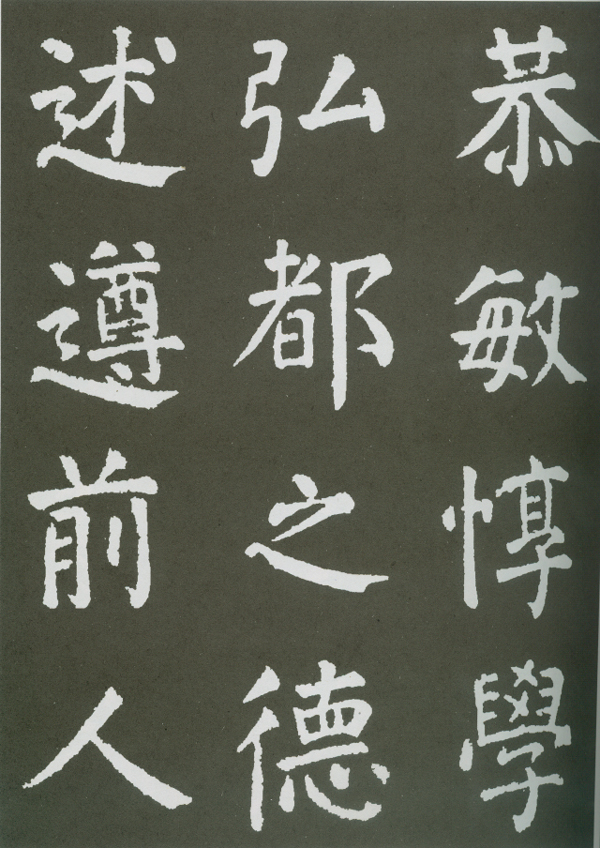 恭敏惇學
弘都之德
述遵前人